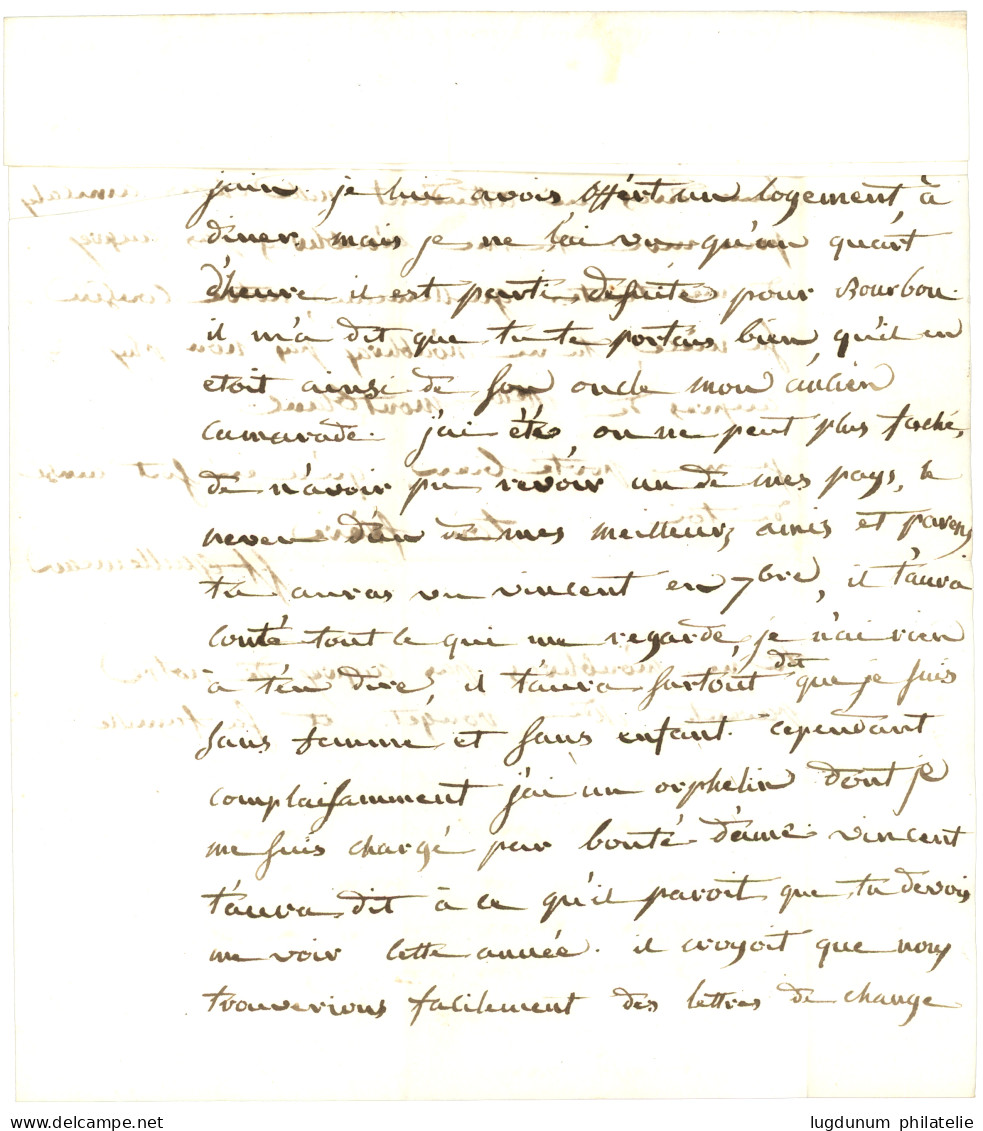 juin. je lui avois offért un logement, à
diner, mais je ne l'ai vu qu'un quart
d'heure il est parti désuité pour Bourbon.
il m'a dit que tu te portais bien, qu'il en
étoit ainsi de son oncle mon ancien
camarade. j'ai été, on ne peut plus faché,
de n'avoir pu révoir un de mes pays, le
neveu d'un de mes meilleurs amis et parens
tu auras vu vincent en 7bre, il t'aura
conté tout ce qui me regarde, je n'ai rien
à t'en dire, il t'aura surtout dit que je suis
sans femme et sans enfant. cependant
complaisamment j'ai un orphelin dont je
me suis chargé par bonté d'âme. vincent
t'aura dit à ce qu'il paroit que tu devois
me voir cette année. il croyoit que nous
trouverions facilement des lettres de change
lugdunum philatelie